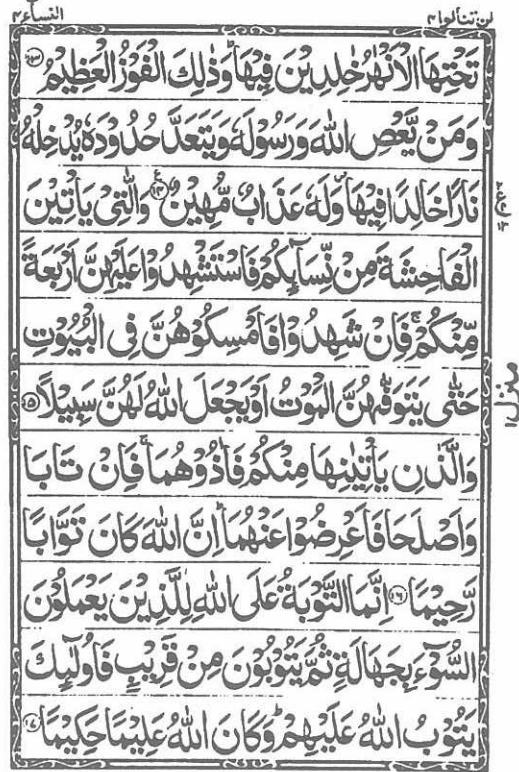 لن تنالوا ٤
النساء ٤
تَحْتِهَا الْاَنْهٰرُ خٰلِدِيْنَ فِيْهَا ؕ وَذٰلِكَ الْفَوْزُ الْعَظِيْمُ ﴿۱۳﴾
وَمَنْ يَّعْصِ اللّٰهَ وَرَسُوْلَهٗ وَيَتَعَدَّ حُدُوْدَهٗ يُدْخِلْهُ
نَارًا خَالِدًا فِيْهَا ۪ وَلَهٗ عَذَابٌ مُّهِيْنٌ ﴿۱۴﴾ وَالّٰتِيْ يَاْتِيْنَ
الْفَاحِشَةَ مِنْ نِّسَآىِٕكُمْ فَاسْتَشْهِدُوْا عَلَيْهِنَّ اَرْبَعَةً
مِّنْكُمْ ۚ فَاِنْ شَهِدُوْا فَاَمْسِكُوْهُنَّ فِى الْبُيُوْتِ
حَتّٰى يَتَوَفّٰىهُنَّ الْمَوْتُ اَوْ يَجْعَلَ اللّٰهُ لَهُنَّ سَبِيْلًا ﴿۱۵﴾
وَالَّذٰنِ يَاْتِيٰنِهَا مِنْكُمْ فَاٰذُوْهُمَا ۚ فَاِنْ تَابَا
وَاَصْلَحَا فَاَعْرِضُوْا عَنْهُمَا ؕ اِنَّ اللّٰهَ كَانَ تَوَّابًا
رَّحِيْمًا ﴿۱۶﴾ اِنَّمَا التَّوْبَةُ عَلَى اللّٰهِ لِلَّذِيْنَ يَعْمَلُوْنَ
السُّوْٓءَ بِجَهَالَةٍ ثُمَّ يَتُوْبُوْنَ مِنْ قَرِيْبٍ فَاُولٰٓىِٕكَ
يَتُوْبُ اللّٰهُ عَلَيْهِمْ ؕ وَكَانَ اللّٰهُ عَلِيْمًا حَكِيْمًا ﴿۱۷﴾
منزل ۱